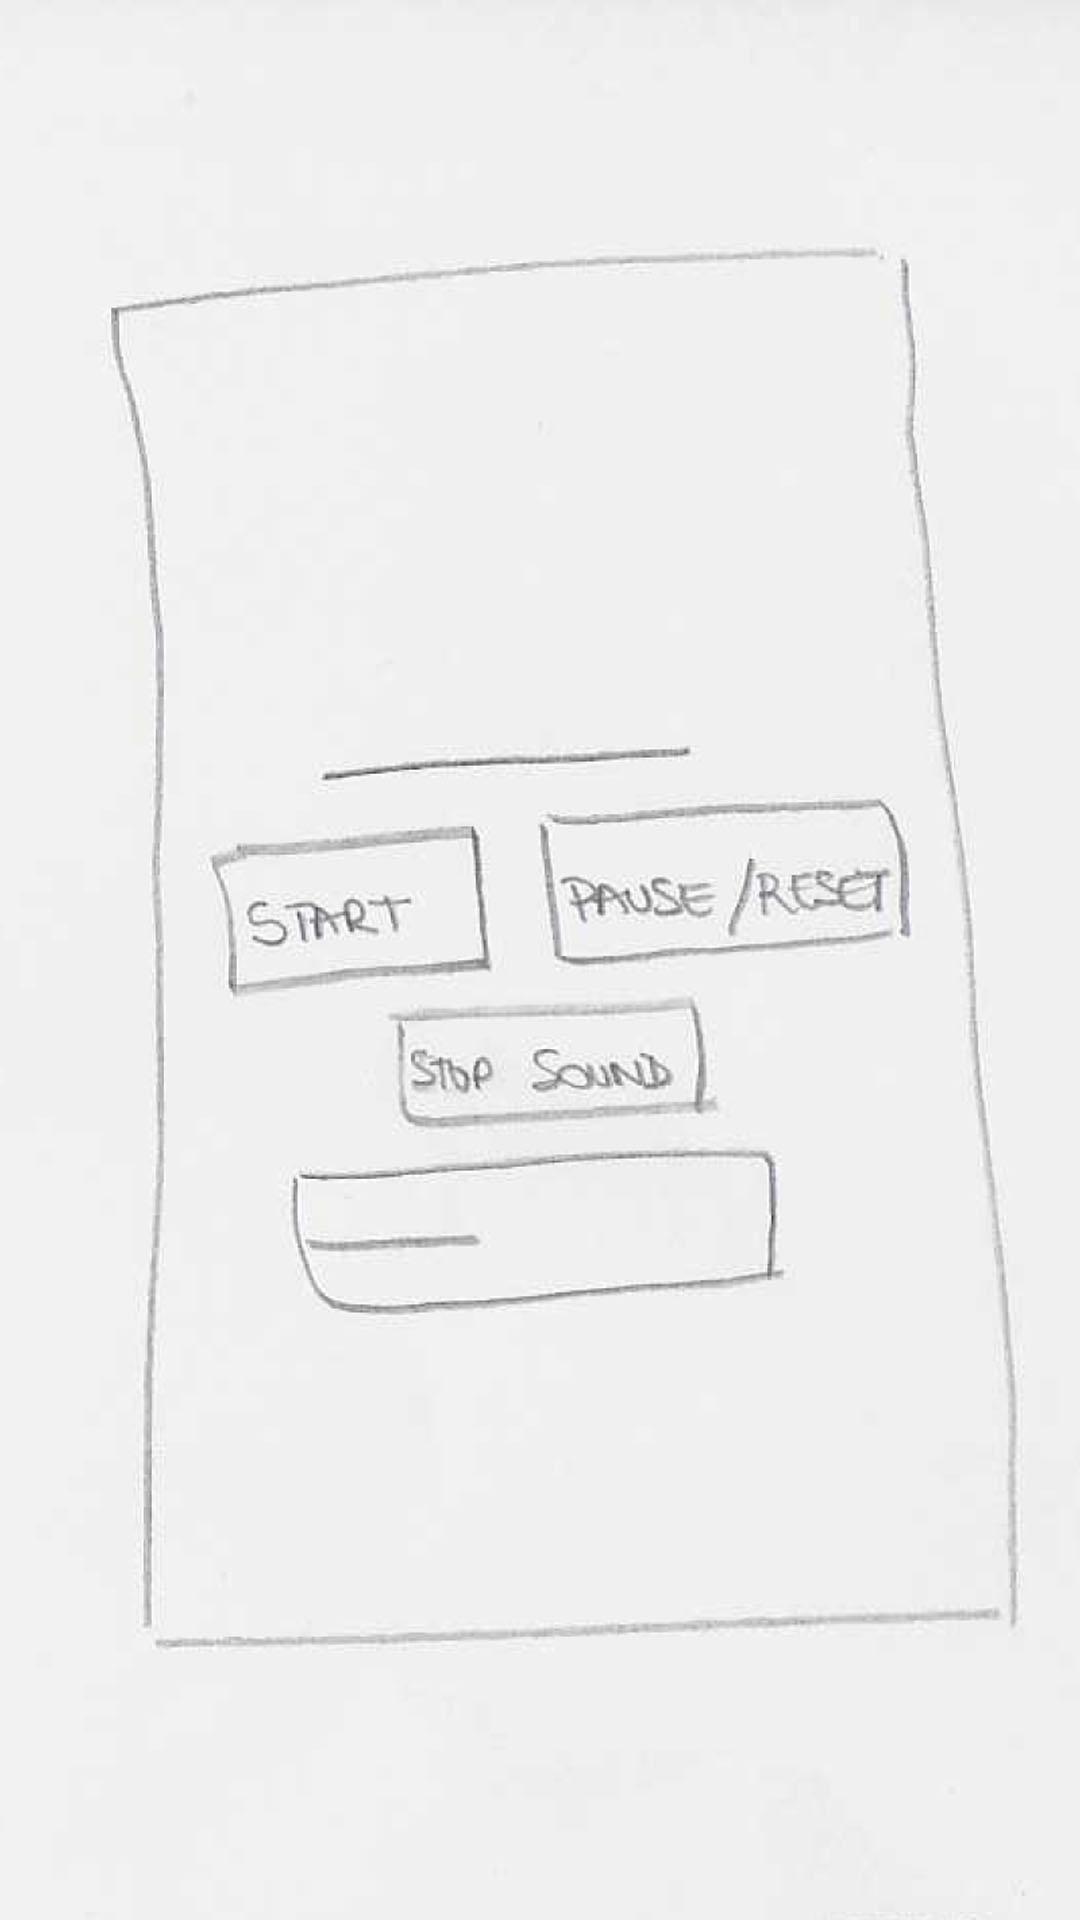 START
PAUSE/RESET
STOP SOUND